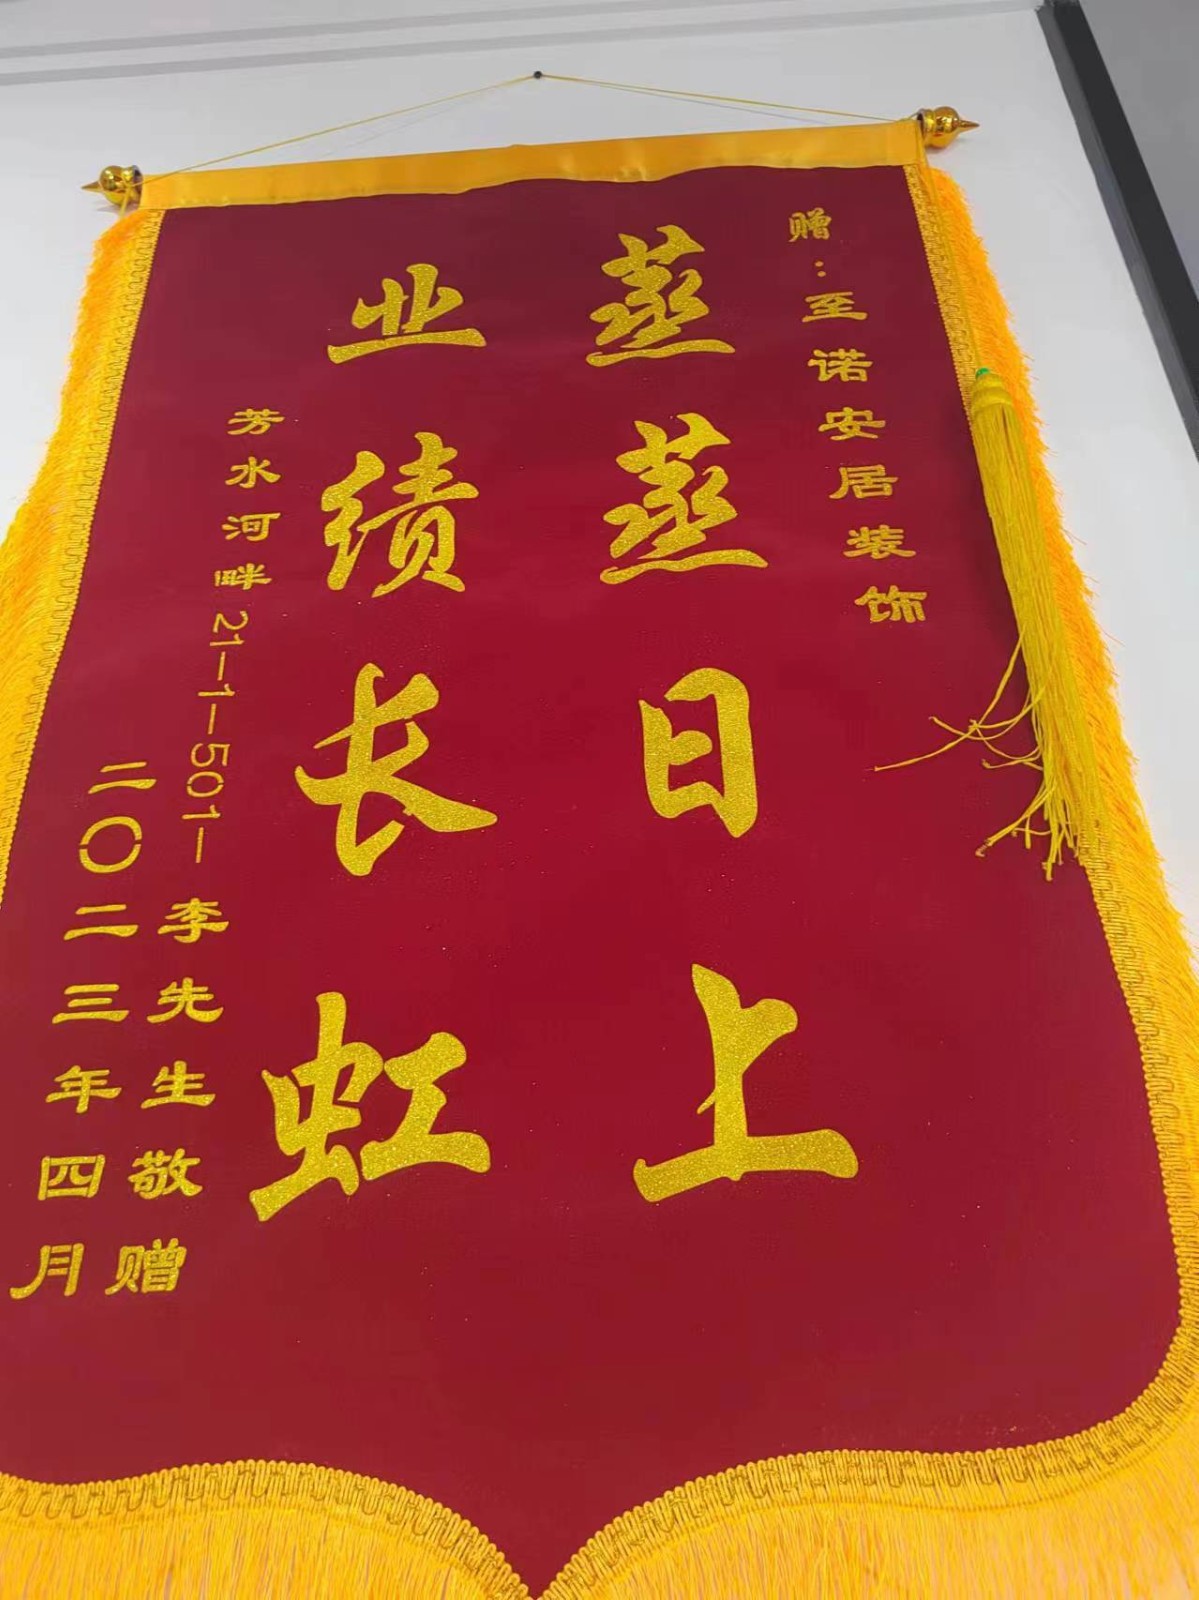 赠：至诺安居装饰
蒸蒸日上
业绩长虹
芳水河畔21-1-501-李先生敬赠
二〇二三年四月